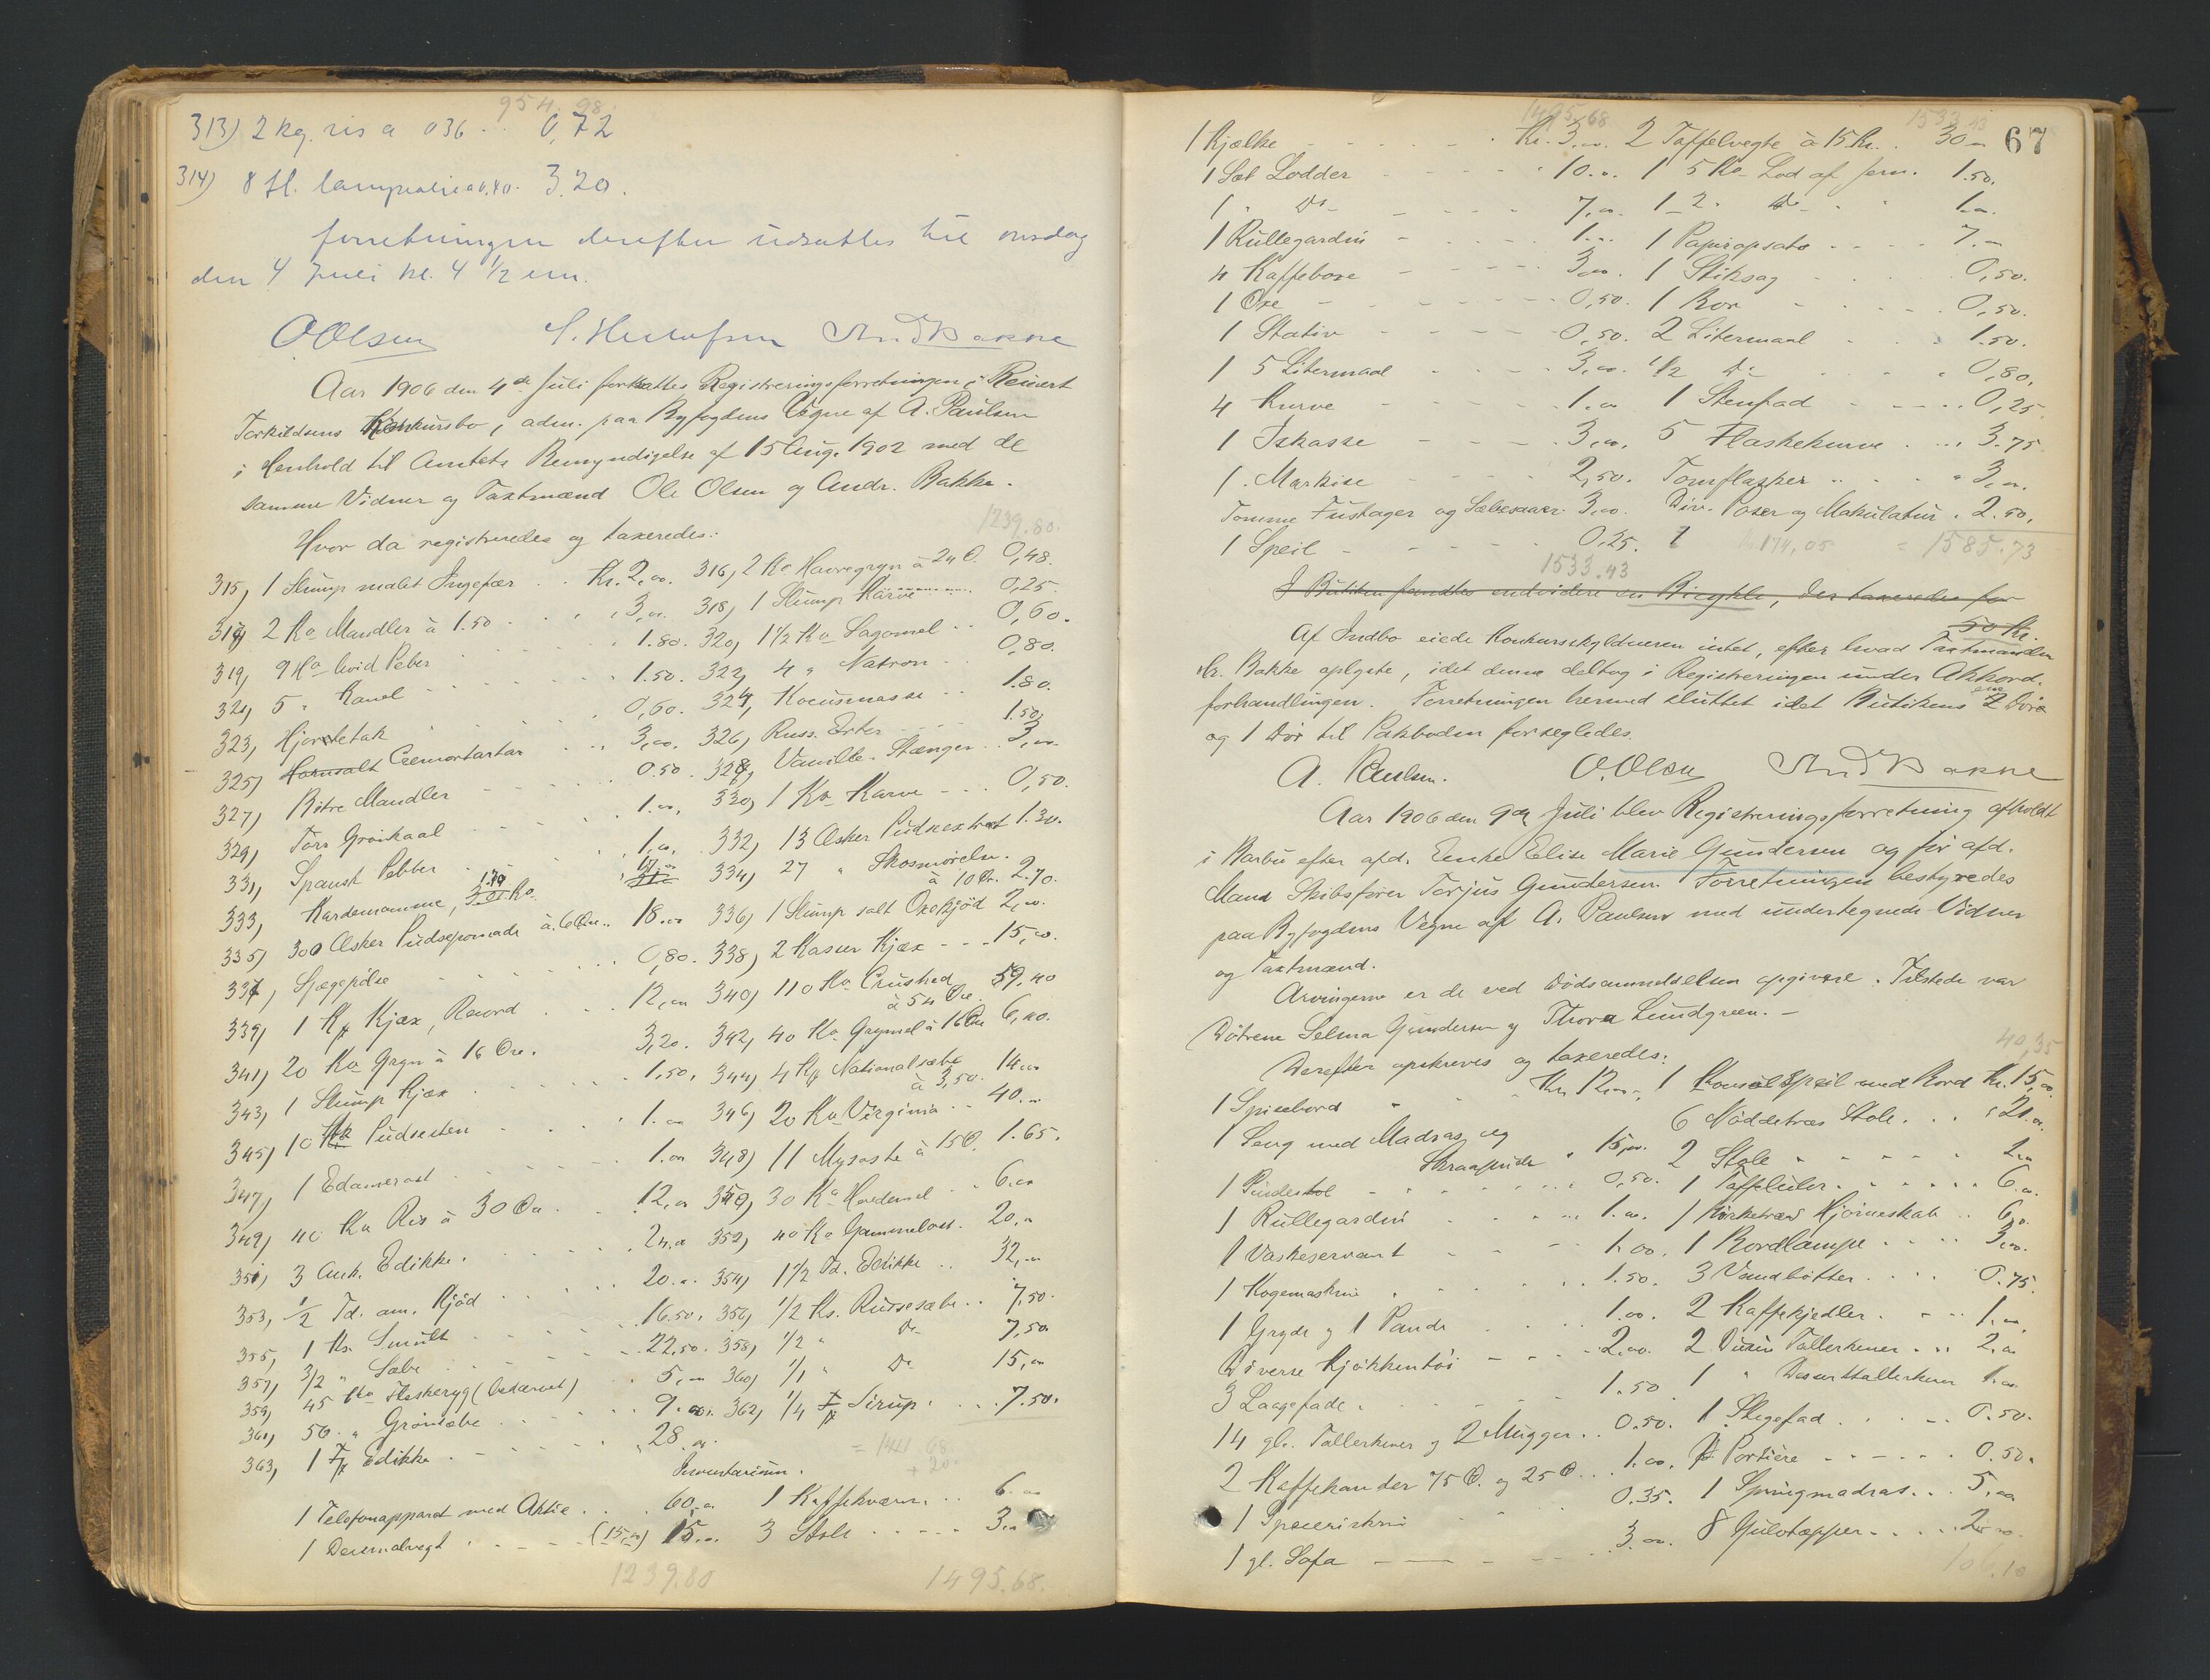 954.98
313) 2 kg. ris a 036 .. 0,72
314) 8 fl. lampeolie a 0.40. 3.20.
forretningen derefter udsattes til onsdag
den 4 Juli kl. 4 1/2 em.
O. Olsen And Bakke
Aar 1906 den 4de Juli fortsattes Registreringsforretningen i Reinert
Torkildsens Konkursbo, adm. paa Byfogdens Vegne af A. Paulsen
i Henhold til Amtets Bemyndigelse af 15 Aug. 1902 med de
samme Vidner og Taxtmænd Ole Olsen og Andr. Bakke.
Hvor da registreredes og taxeredes: 1239.80.
315, 1 Slump malet Ingefær . . Kr. 2,00. 316, 2 Ko Havregryn à 24 Ø. 0,48.
317, 2 Ko Mandler à 1.50 . . . 3,00. 318, 1 Slump Karve ...... 0,25.
319, 9 Ho hvid Peber . . . 1.80. 320, 1 1/2 Ko Sagomel . . 0,60.
321, 5 " Kanel . . . 1.50. 322, 4 " Natron . . . 0,80.
323, Hjortetak . . . 0,60. 324, Kocusmasse . . 1.80.
325, Hornsalt Cremortartar . . . 3,00. 326, Russ. Erter . . . 1.50.
327, Bitre Mandler . . . 0.50. 328, Vanille-Stænger . . 3,00.
329, Tørr Grønkaal . . . 1.00, 330, 1 Ko Karve . . . 0,50.
331, Spansk Pebber . . . 1,00, 332, 13 Æsker Pudsextract 1.30.
333, Kardemomme, 1.70 Ko. 334, 27 " Skosmørelse. à 10 Ør. 2.70.
335, 300 Æsker Pudsepomade à 6 Øre.. 18.00 336, 1 Slump salt Oxekjød 2,00.
337, Spegepølse . . . 0,80. 338, 2 Kasser Kjæx . . . 15,00.
339, 1 Ks Kjæx, Record . . . 12,00 340, 110 Ko Crushed à 54 Øre. 59,40
341, 20 Ko Gryn à 16 Øre. 3,20. 342, 40 Ko Grynmel à 16 Øre 6,40.
343, 1 Slump Kjæx . . . 1,50, 344, 4 Ks Nationalsæbe à 3,50. 14,00
345, 10 Pudsesten . . . 1.00 346, 20 Ko Virginia . . 40.00
347, 1 Edamerost . . . 1.00 348, 11 Mysoste à 15 Ø. 1.65.
349, 40 Ko Ris à 30 Øre . . . 12,00 350, 30 Ko Hvedemel . . 6.00
351, 3 Ank. Edikke. . . . 24.00 352, 40 Ko Gammelost. 20,00
353, 1/2 Td. am. Kjød . . . 20.00. 354, 1 1/2 Td. Edikke . . 32,00
355, 1 Ks. Smult . . . 16.50. 356, 1/2 Ks. Russesæbe . . 7,50.
357, 3/2 " Sæbe . . . 22.50. 358, 1/2 " Do 7,50
359, 45 Ko Fleskeryg (bedærvet) 5,00 360, 1/1 " Do 15,00
361, 50 " Grønsæbe . . . 9.00. 362, 1/4 Sirup . . . 7.50.
363, 1 Edikke . . . 28.00.
Inventarium.
1 Telefonapparat med Aktie . . 60,00 1 Kaffekværn . . . 6.00
1 Decimalvegt . . . (15.00) 15.00. 3 Stole . . . 3,00
1239.80 1495.68.
67
1495.68 1533.43
1 Kjælke . . . Kr. 3,00. 2 Taffelvegte à 15 Kr. . 30.00
1 Sæt Lodder . . . 10.00. 1 5 Ko Lod af jern. 1.50.
1 " Do . . . 7,00. 1 2 " Do 1.00.
1 Rullegardin . . . 1.00. 1 Papiropsats . . . 7.00
4 Kaffeboxe . . . 3,00. 1 Stiksag . . . 0,50.
1 Øxe . . . 0,50. 1 Bor . . . 0,50.
1 Stativ . . . 0,50. 2 Litermaal . . . 1.50.
1 5 Litermaal . . . 3,00. 1/2 Do . . . 0,80.
4 Kurve . . . 1.00 1 Stenfad . . . 0,25.
1 Iskasse . . . 3,00. 5 Flaskekurve . . . 3.75
1 Markise . . . 2,50. Tomflasker . . . 3,00.
Tomme Fustager og Sæbekasser. 3,00. Div. Poser og Makulatur . 2.50.
1 Speil . . . 0,25. 174,05 = 1585.73
1533.43
I Butiken fandtes endvidere en Bicykle, der taxeredes for
50 Kr.
Af Indbo eiede Konkursskyldneren intet, efter hvad Taxtmanden
Hr. Bakke oplyste, idet denne deltog i Registreringen under Akkord-
forhandlingen. Forretningen hermed sluttet idet Butikens 2 Døre
og 1 Dør til Pakboden forsegledes.
A. Paulsen. O. Olsen And Bakke
Aar 1906 den 9de Juli blev Registreringsforretning afholdt
i Barbu efter afd. Enke Elise Marie Gundersen og før afd.
Mand Skibsfører Torjus Gundersen. Forretningen bestyredes
paa Byfogdens Vegne af A. Paulsen med undertegnede Vidner
og Taxtmænd.
Arvingerne er de ved Dødsanmeldelsen opgivne. Tilstede var
Døtrene Selma Gundersen og Thora Lundgreen. –
Derefter opskreves og taxeredes: 40,35
1 Spisebord . . . Kr. 12.00, 1 Konsolspeil med Bord Kr. 15,00.
1 Seng med Madras og Skraapude " 15,00. 6 Nøddetræs Stole . . . 21.00.
1 Pindestol . . . 0,50. 2 Stole . . . 2.00
1 Rullegardin . . . 1.00. 1 Taffeluhr . . . 6.00.
1 Vaskeservant . . . 1.00. 1 Birketræs Hjørneskab . . 6,00.
1 Kogemaskin . . . 1.50. 1 Bordlampe . . . 3,00.
1 Gryde og 1 Pande . . . 1.00. 3 Vandbøtter . . . 0.75.
Diverse Kjøkkentøi . . . 2.00. 2 Kaffekjedler . . . 1.00,
3 Laagefade . . . 1.50 2 Dusin Tallerkener . . . 2.00
14 gl. Tallerkener og 2 Mugger . . 0.50. 1 " Desserttallerkener 1.00
2 Kaffekander 75 Ø. og 25 Ø. . . 1.00. 1 Stegefad . . . 0.50.
1 . . . 0.35. Portiere . . . 0.50.
1 gl. Sofa . . . 3.00. 1 Springmadras . . . 5,00
8 Gulvtæpper . . . 2.00.